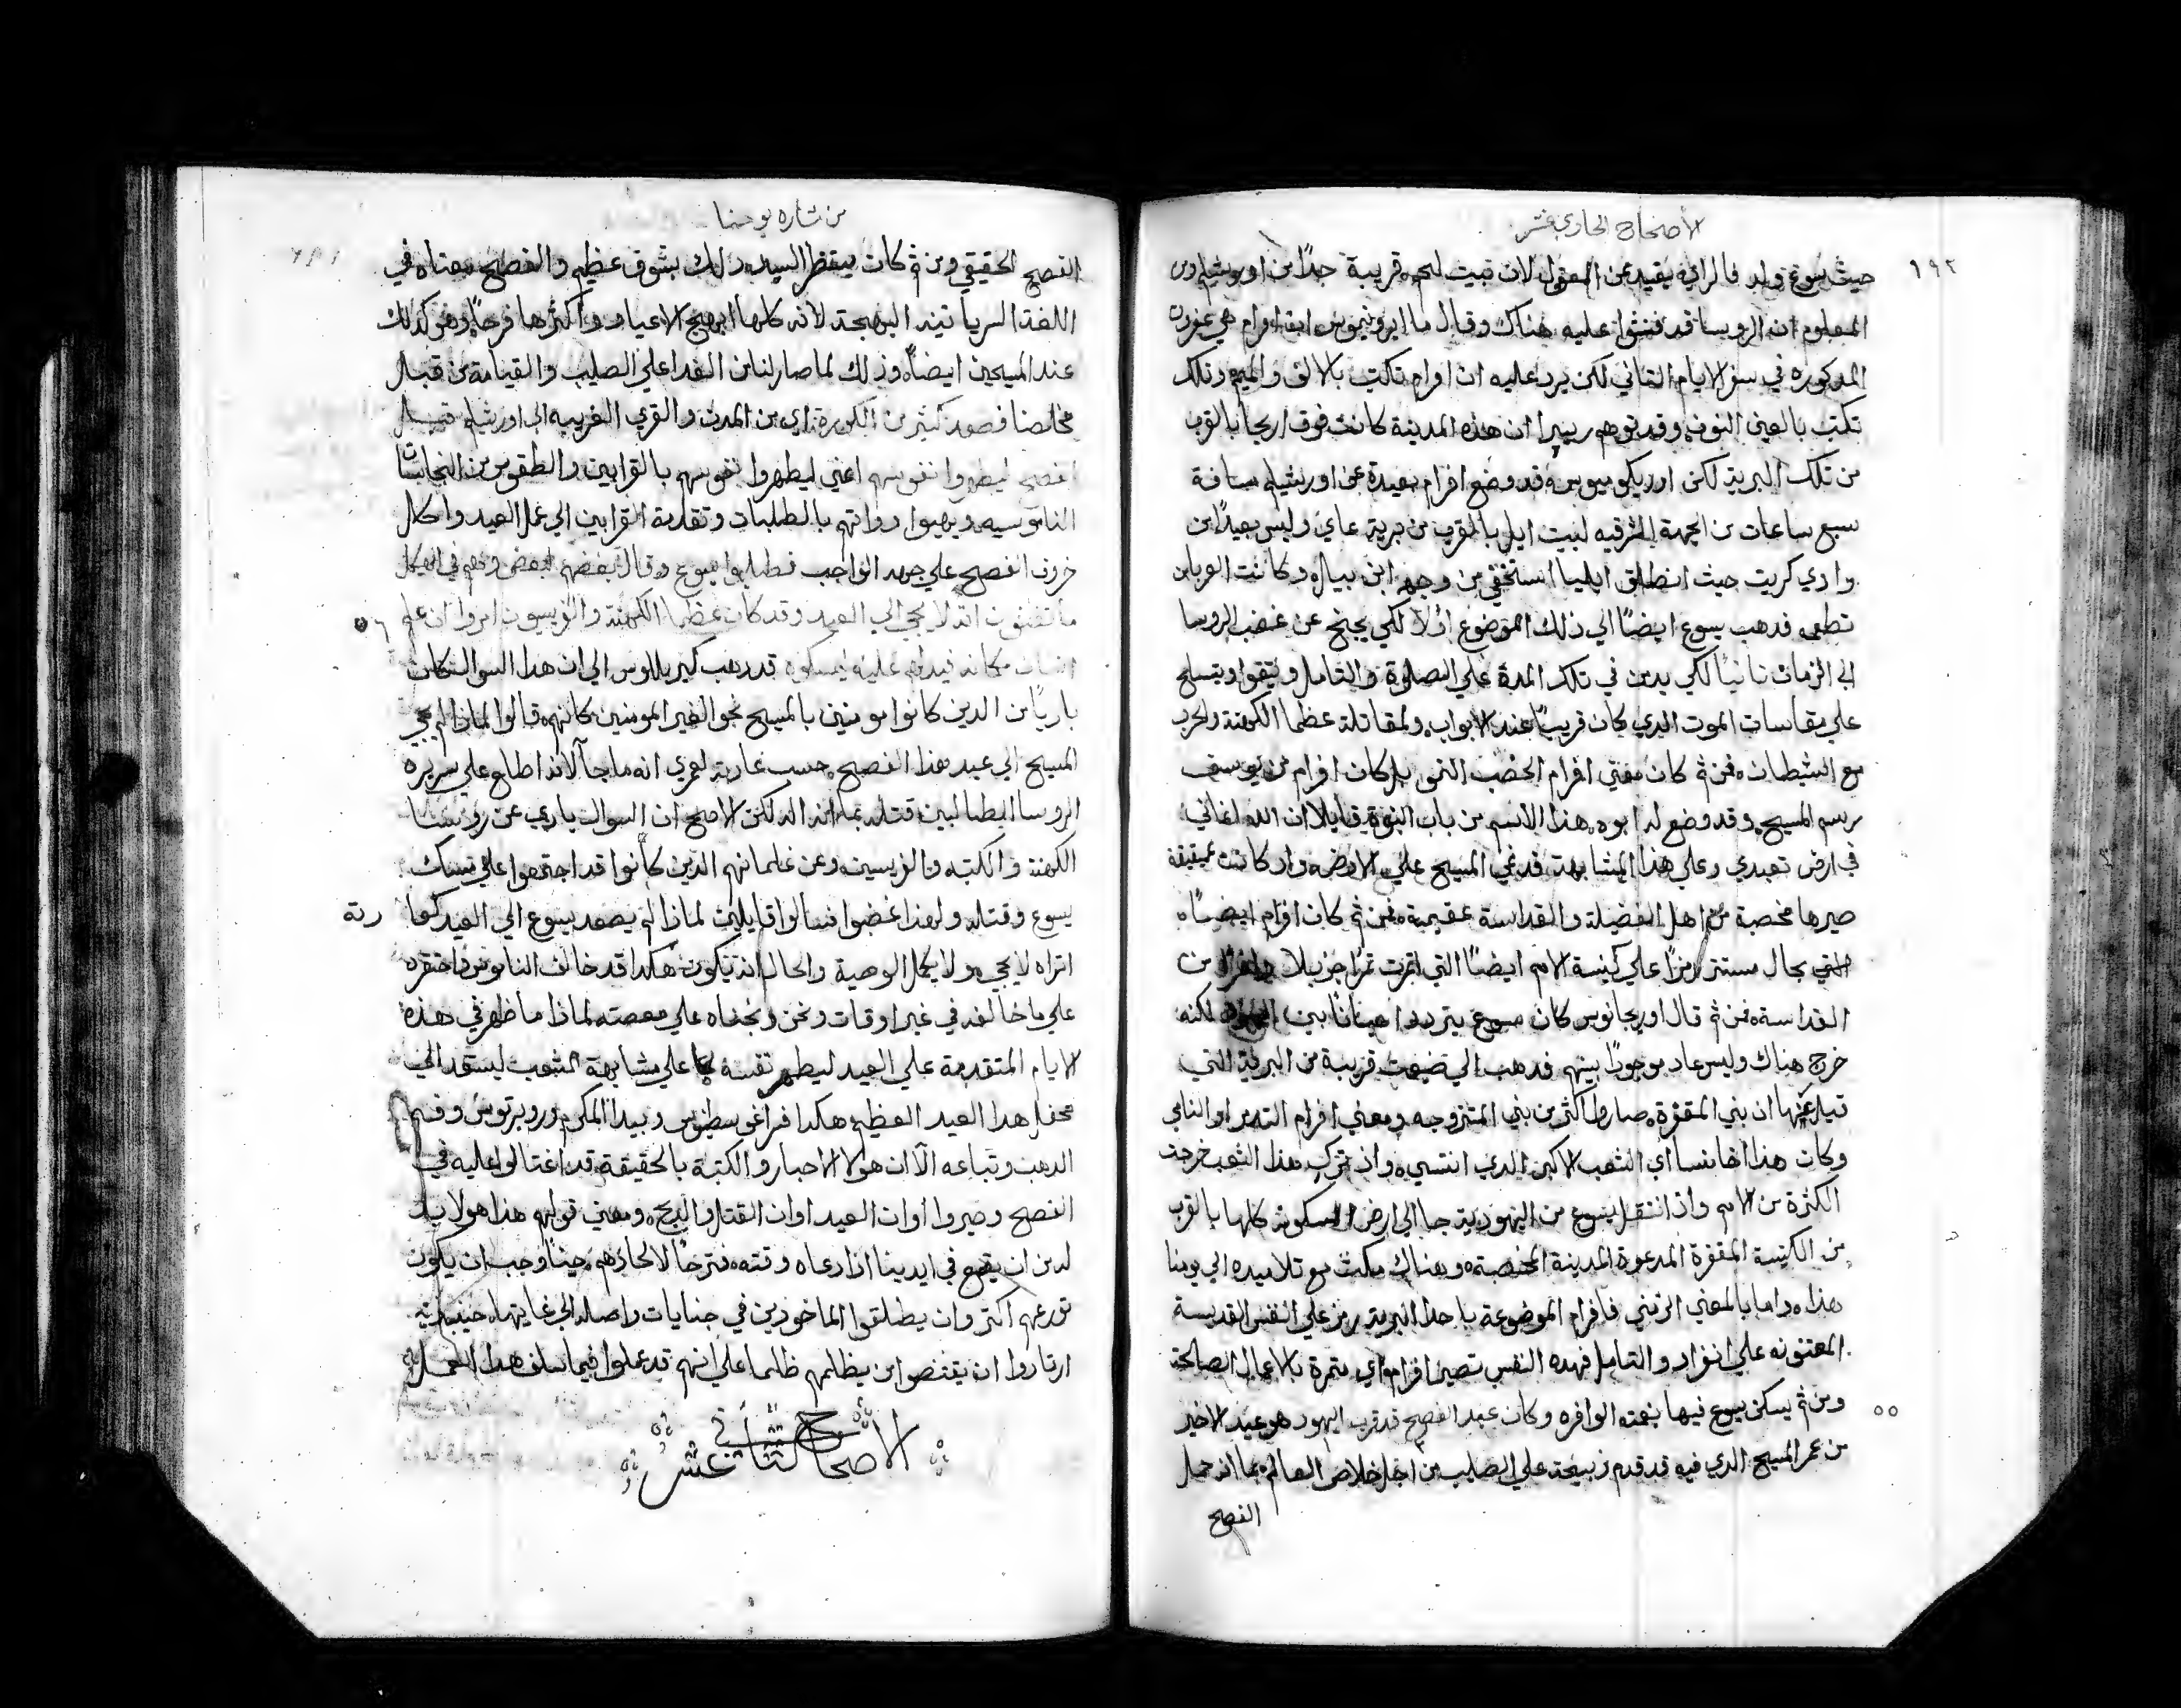 الأصحاح الحادي عشر
١٩٢
حيث يسوع ولد فالراي بعيد عن العقول لان بيت لحم قريبة جدًا من اورشليم ومن
المعلوم ان الروسا قد فتشوا عليه هناك وقال مار ايرونيموس ان افرام هي عفرون
المدكوره في سفر الايام الثاني لكن يرد عليه ان افرام تكتب بالالف والميم وتلك
تكتب بالعين النون وقد توهم ان هذه المدينة كانت فوق اريحا بالقرب
من تلك البرية لكن قد وضع افرام بعيدة عن اورشليم مسافة
سبع ساعات من الجهة الشرقيه لبيت ايل بالقرب من برية عاي وليس بعيدًا من
وادي كريت حيث انطلق ايليا استخفي من وجه وكانت الغربان
تطعمه فدهب يسوع ايضًا الي ذلك الموضع اولا لكي يجنح عن غضب الروسا
الي الزمان ثانيًا لكي يدمن في تلك المدة علي الصلوة والتامل ويتقوا ويتسلح
علي مقاسات الموت الدي كان قريبًا عند الابواب ولمقاتلة عظما الكهنة ولحرب
مع الشيطان فمن ثم كان معني افرام الخصب النمو بل كان افرام من يوسف
برسم المسيح وقد وضع له ابوه هذا الاسم من باب النبوة قايلا ان الله انماني
في ارض تعبدي وعلي هذا المشابهة قد نمي المسيح علي الارض واد كانت عقيمة
صيرها مخصبة من اهل الفضيلة والقداسة عقيمة فمن ثم كان افرام ايضًا
التي بحال مستتر رمزًا علي كنيسة الامم ايضًا التي اثمرت ثمرا جزيلا من
القداسة فمن ثم قال اوريجانوس كان يسوع يتردد احيانًا بين اليهود لكنه
خرج هناك وليس عاد موجودًا بينهم فدهب الي ضيعت قريبة من البرية التي
قيل عنها ان بني المقفرة صاروا اكثر من بني المتزوجه ومعني افرام الثمر او النامي
وكان هذا اخا منسا اي الشعب الاكبر الدي انتسي واد ترك هذا الشعب خرجت
الكثرة من الامم واد انتقل يسوع من اليهودية جا الي ارض المسكونه كلها بالقرب
من الكنيسة المقفرة المدعوة المدينة المخصبة وهناك مكث مع تلاميده الي يومنا
هذا واما بالمعني الرمزي فافرام الموضوعة باحدا البرية رمز علي النفس القديسة
المعتنونه علي انفراد والتامل فهده النفس تصير افرام اي مثمرة بالاعمال الصالحة
٥٥
ومن ثم يسكن يسوع فيها بنعمته الوافره وكان عيد الفصح قد قرب اليهود هو عيد الاخير
من عمر المسيح الدي فيه قد قدم دبيحة علي الصليب من اجل خلاص العالم بما انه حمل
الفصح
من بشاره يوحنا
الفصح الحقيقي ومن ثم كان ينتظر السيد ذلك بشوق عظيم والفصح معناه في
اللغة السريانيه البهجة لانه كلها ابهج الاعياد واكثرها فرحًا وهو كذلك
عند المسيحين ايضًا وذلك لما صار لنا من الفدا علي الصليب والقيامة من قبل
مخلصنا فصعد كثير من الكورة اي من المدن والقري القريبه الي اورشليم قبل
الفصح ليطهروا نفوسهم اعني ليطهروا نفوسهم بالقرابين والطقوس من النجاسات
الناموسيه ويهيوا دواتهم بالطلبات وتقدمة القرابين الي عمل العيد واكل
خروف الفصح علي جهد الواجب فطلبوا يسوع وقال بعضهم لبعض وهم في الهيكل
٥٦
ما تظنون انه لا يجي الي العيد وقد كان عظما الكهنة والفريسيون امروا ان علم
انسان مكانه فيدلهم عليه ليمسكوه قد دهب كيريللوس الي ان هدا السوال كان
باديًا من الدين كانوا مومنين بالمسيح نحو الغير المومنين كانهم قالوا لماذا لم يجي
المسيح الي عيد هذا الفصح حسب عادته لعمري انه ما جا لانه اطلع علي سريرة
الروسا الطالبين قتله بما انه اله لكن الاصح ان السوال بادي عن روسا
الكهنة والكتبه والفريسين وعن غلمانهم الدين كانوا قد اجتمعوا علي مسك
يسوع وقتله ولهذا غضبوا فسالوا قايلين لماذا لم يصعد يسوع الي العيد كعادته
اتراه لا يجي ولا يكمل الوصية والحال انه يكون هكدا قد خالف الناموس واحتقره
علي ما خالفه في غير اوقات ونحن وبخناه علي معصته لماذا ما ظهر في هذه
الايام المتقدمة علي العيد ليطهر نفسه علي مشابهة الشعب ليستعد الي
محفل هدا العيد العظيم هكدا فسر اغوسطينوس وبيدا المكرم وروبرتوس وفم
الدهب وتباعه الآ ان هولا الاحبار والكتبة بالحقيقة قد اغتالوا عليه في
الفصح وصيروا أوان العيد اوان القتل والدبح ومعني قولهم هذا هو لا بد
له من ان يقع في ايدينا اذا دعاه وقته فترحًا لالحادهم حينًا وجب ان يكون
تورعهم اكثر وان يطلقوا الماخودين في جنايات واصله الي غايتها حينيد
ارتادوا ان يقتنصوا من يظلمهم ظلما علي انهم قد عملوا فيما سلف هدا العمل
الاصحاح الثاني عشر